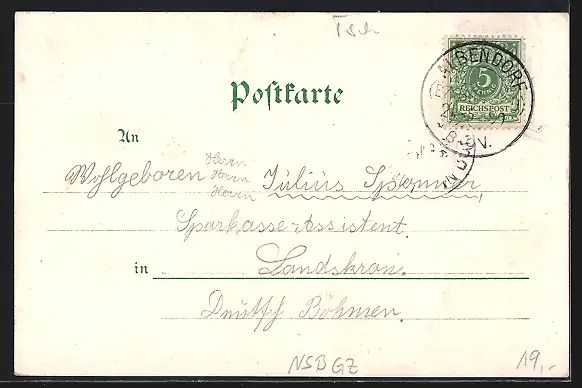 Tsch.
ALBENDORF
5
REICHSPOST
Postkarte
An
Wohlgeboren Herrn Herrn Herrn Julius Sponner,
Sparkasse-Assistent.
in Landskron.
Deutsch Böhmen.
NSBGZ
19,-